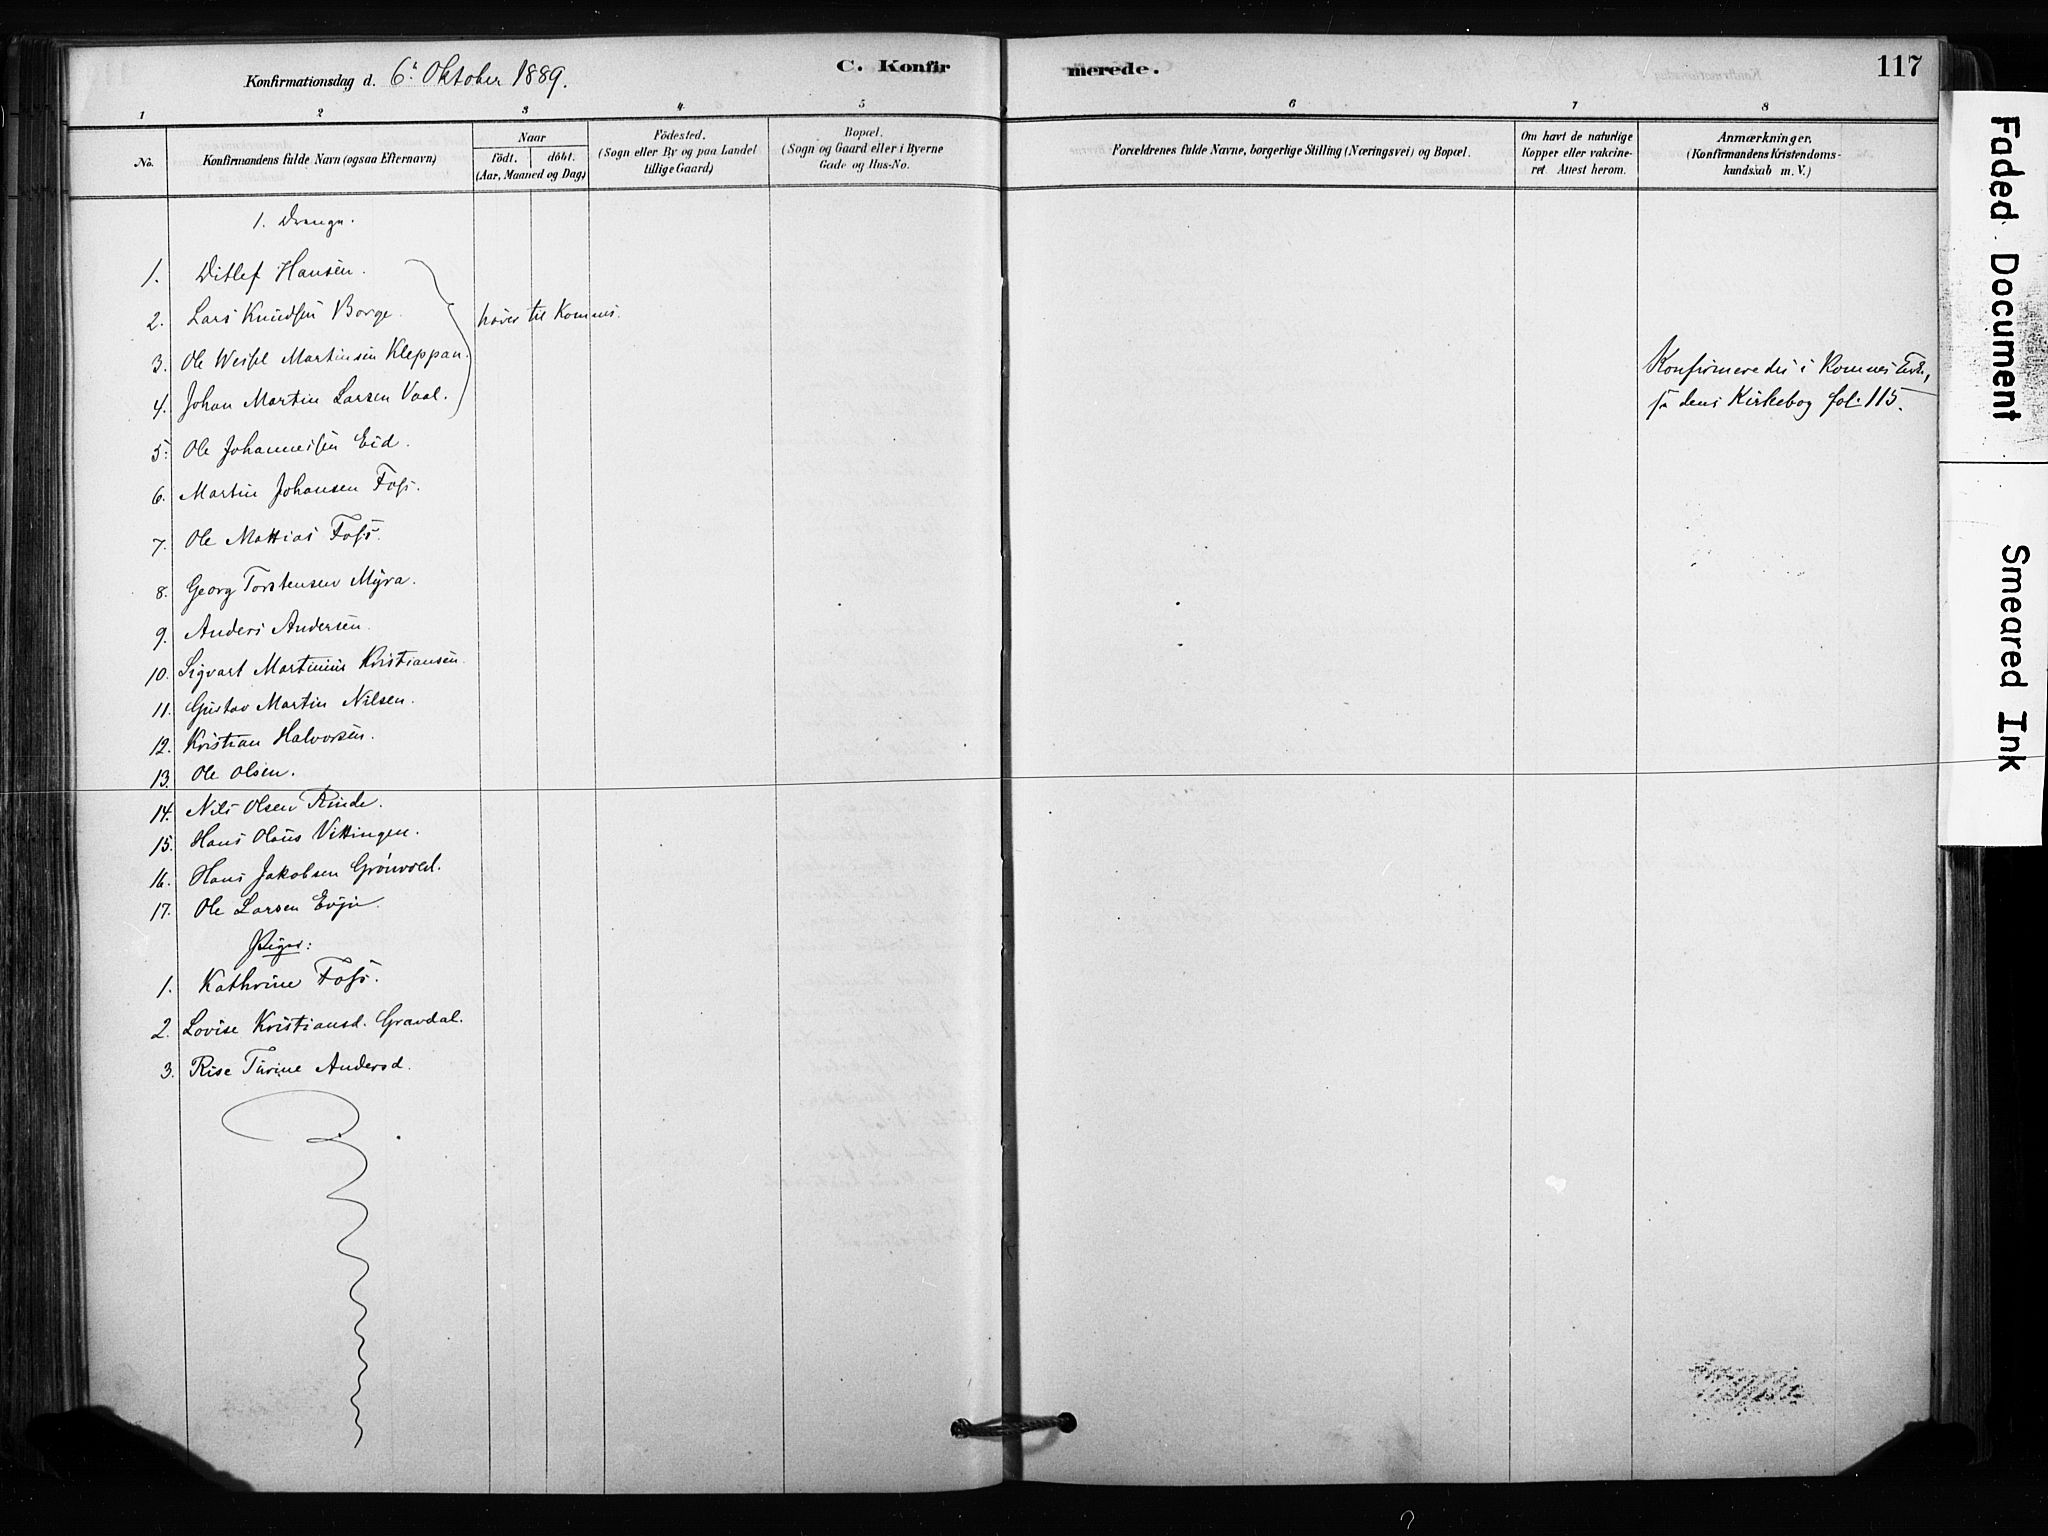 Konfirmationsdag d. 6' Oktober 1889.
C. Konfirmerede.
117
1 2 3 4 5 6 7 8
No.
Konfirmandens fulde Navn (ogsaa Efternavn)
Naar
födt. döbt.
(Aar, Maaned og Dag)
Födested.
(Sogn eller By og paa Landet
tillige Gaard)
Bopæl.
(Sogn og Gaard eller i Byerne
Gade og Hus-No.
Forældrenes fulde Navne, borgerlige Stilling (Næringsvei) og Bopæl.
Om havt de naturlige
Kopper eller vakcine-
ret. Attest herom.
Anmærkninger,
(Konfirmandens Kristendoms-
kundskab m. V.)
1. Drenge.
1. Ditlef Hansen.
2. Lars Knudsen Borge. hører til Komnes.
3. Ole Martinsen Kleppan.
4. Johan Martin Larsen Vaal.
Konfirmeredes i Komnes
dens Kirkebog fol. 115.
5. Ole Johannessen Eid.
6. Martin Johansen Foss.
7. Ole Mattias Foss.
8. Georg Torstensen Myra.
9. Anders Andersen.
10. Sigvart Martinius Kristiansen.
11. Gustav Martin Nilsen.
12. Kristian Halvorsen.
13. Ole Olsen.
14. Nils Olsen Rinde.
15. Hans Olaus Vittingen.
16. Hans Jakobsen Grönvold.
17. Ole Larsen Evju.
Piger:
1. Kathrine Foss.
2. Lovise Kristiansd. Gravdal.
3. Rise Turine Andersd.
Faded Document
Smeared Ink